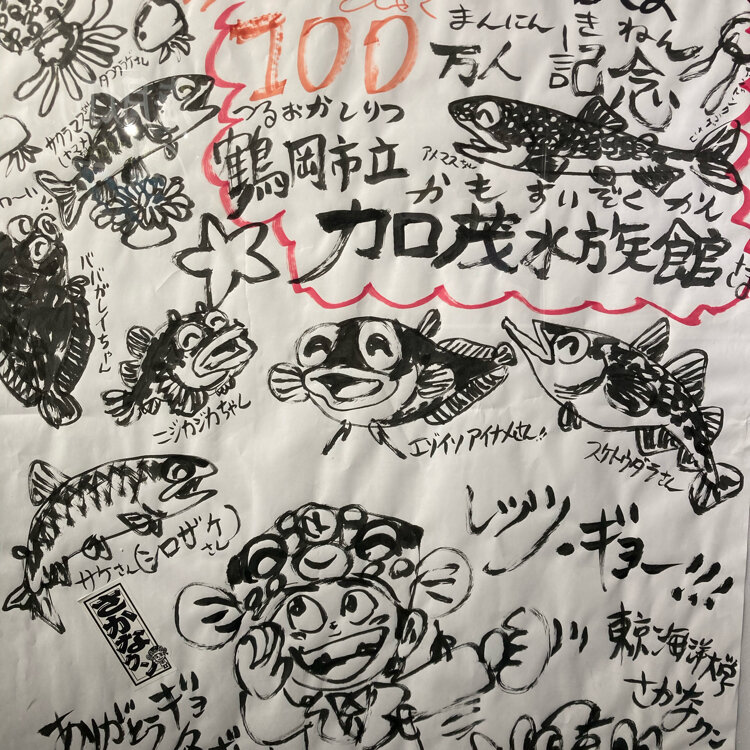 100
まんにん
万人
きねん
記念
つるおかしりつ
鶴岡市立
かもすいぞくかん
加茂水族館
サクラマス
(ヤマメ)
アメマスさん
ババガレイちゃん
ニジカジカちゃん
エゾイソアイナメさん!!
スケトウダラさん
サケさん(シロザケさん)
さかなクン
レッツ・ギョー!!!
東京海洋大学
さかなクン
ありがとうギョ